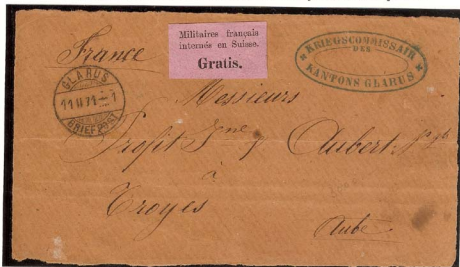 France
Militaires français
internés en Suisse.
Gratis.
KRIEGSCOMMISSAIR
DES
KANTONS GLARUS
GLARUS
11 II 71 – 7
BRIEFPOST
Messieurs
Profit
Aubert
à
Troyes
Aube